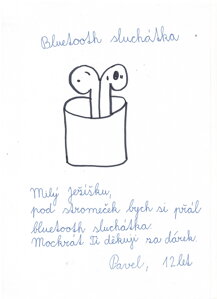 Bluetooth sluchátka
Milý Ježíšku,
pod stromeček bych si přál
bluetooth sluchátka.
Mockrát Ti děkuji za dárek.
Pavel, 12 let